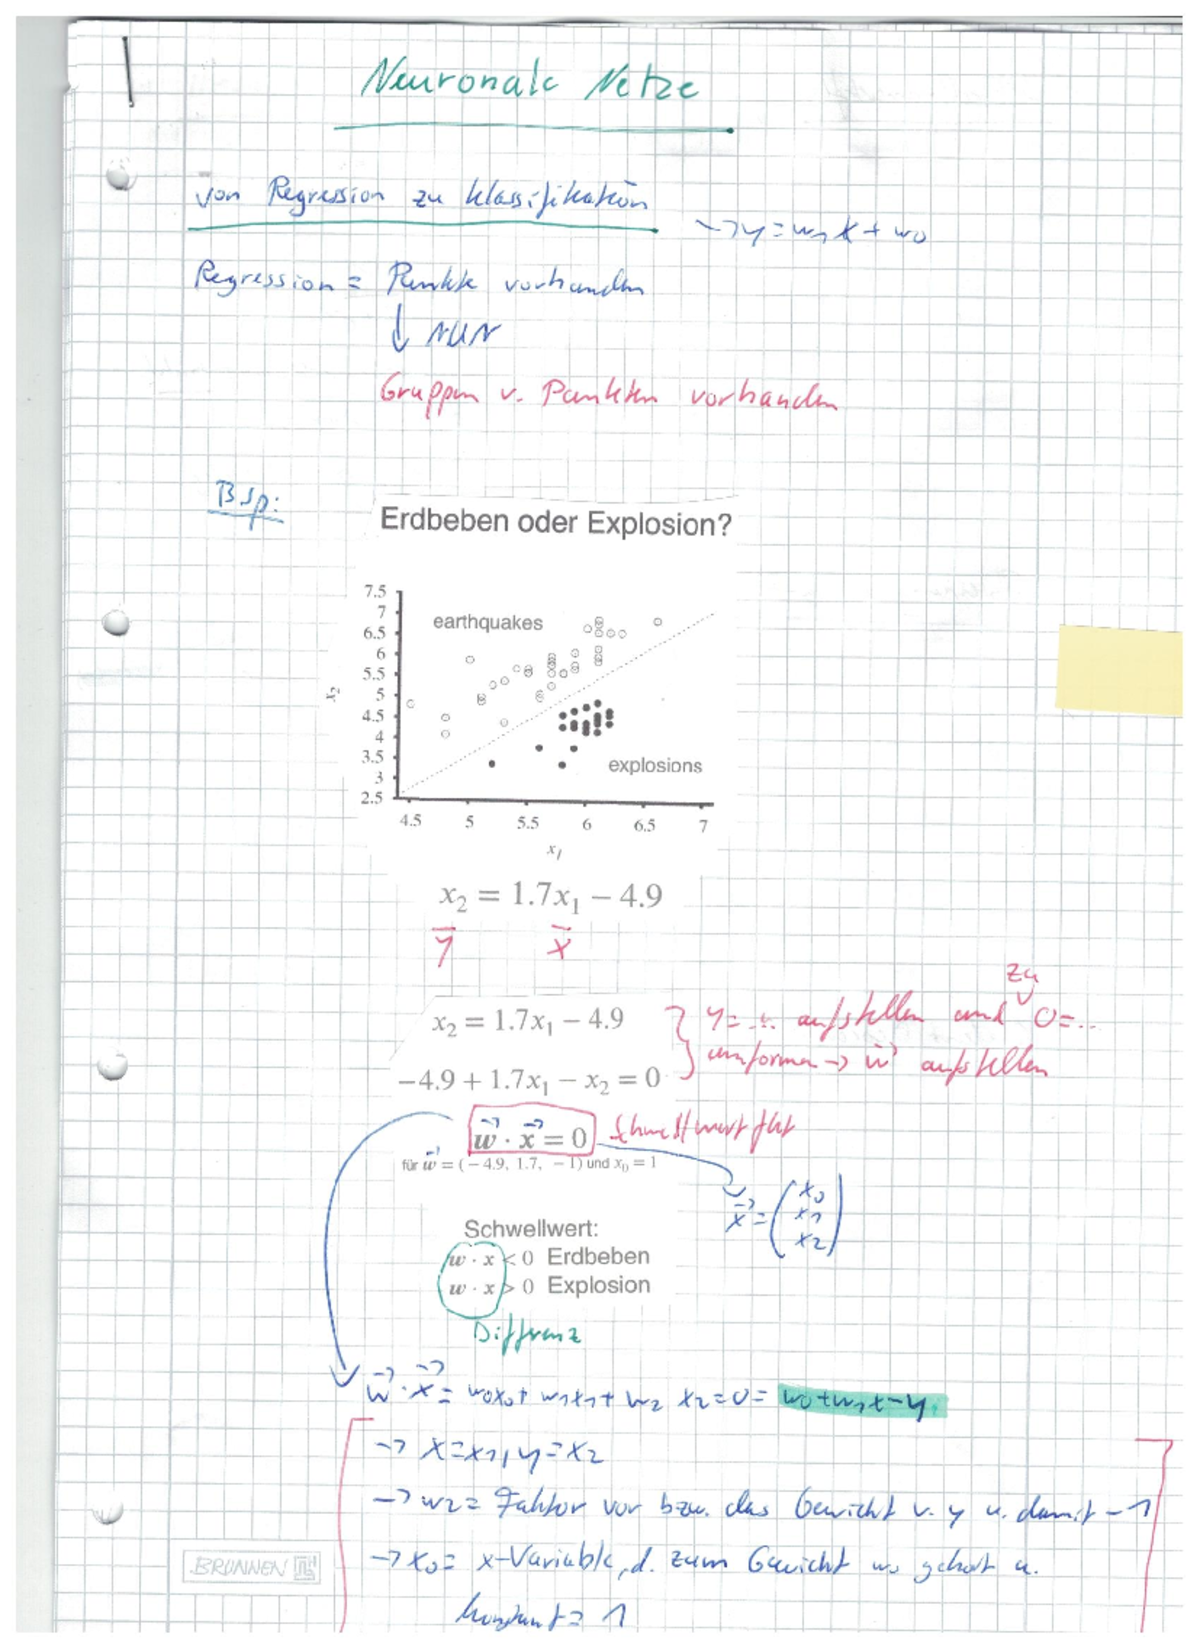 Neuronale Netze
von Regression zu Klassifikation
→ y = w₁x + w₀
Regression = Punkte vorhanden
↓ NUN
Gruppen v. Punkten vorhanden
Bsp:
Erdbeben oder Explosion?
7.5
7
6.5
6
5.5
5
4.5
4
3.5
3
2.5
x₂
earthquakes
explosions
4.5 5 5.5 6 6.5 7
x₁
x₂ = 1.7x₁ − 4.9
y x
x₂ = 1.7x₁ − 4.9
−4.9 + 1.7x₁ − x₂ = 0
y = ... aufstellen und zu 0 = ...
umformen → w⃗ aufstellen
w⃗ · x⃗ = 0
für w⃗ = (−4.9, 1.7, −1) und x₀ = 1
x⃗ = (x₀ x₁ x₂)
Schwellwert:
w · x < 0 Erdbeben
w · x > 0 Explosion
Differenz
w⃗ · x⃗ = w₀x₀ + w₁x₁ + w₂ x₂ = 0 = w₀ + w₁x − y
→ x = x₁, y = x₂
→ w₂ = Faktor vor bzw. das Gewicht v. y u. damit −1
→ x₀ = x-Variable, d. zum Gewicht w₀ gehört u.
konstant = 1
BRUNNEN